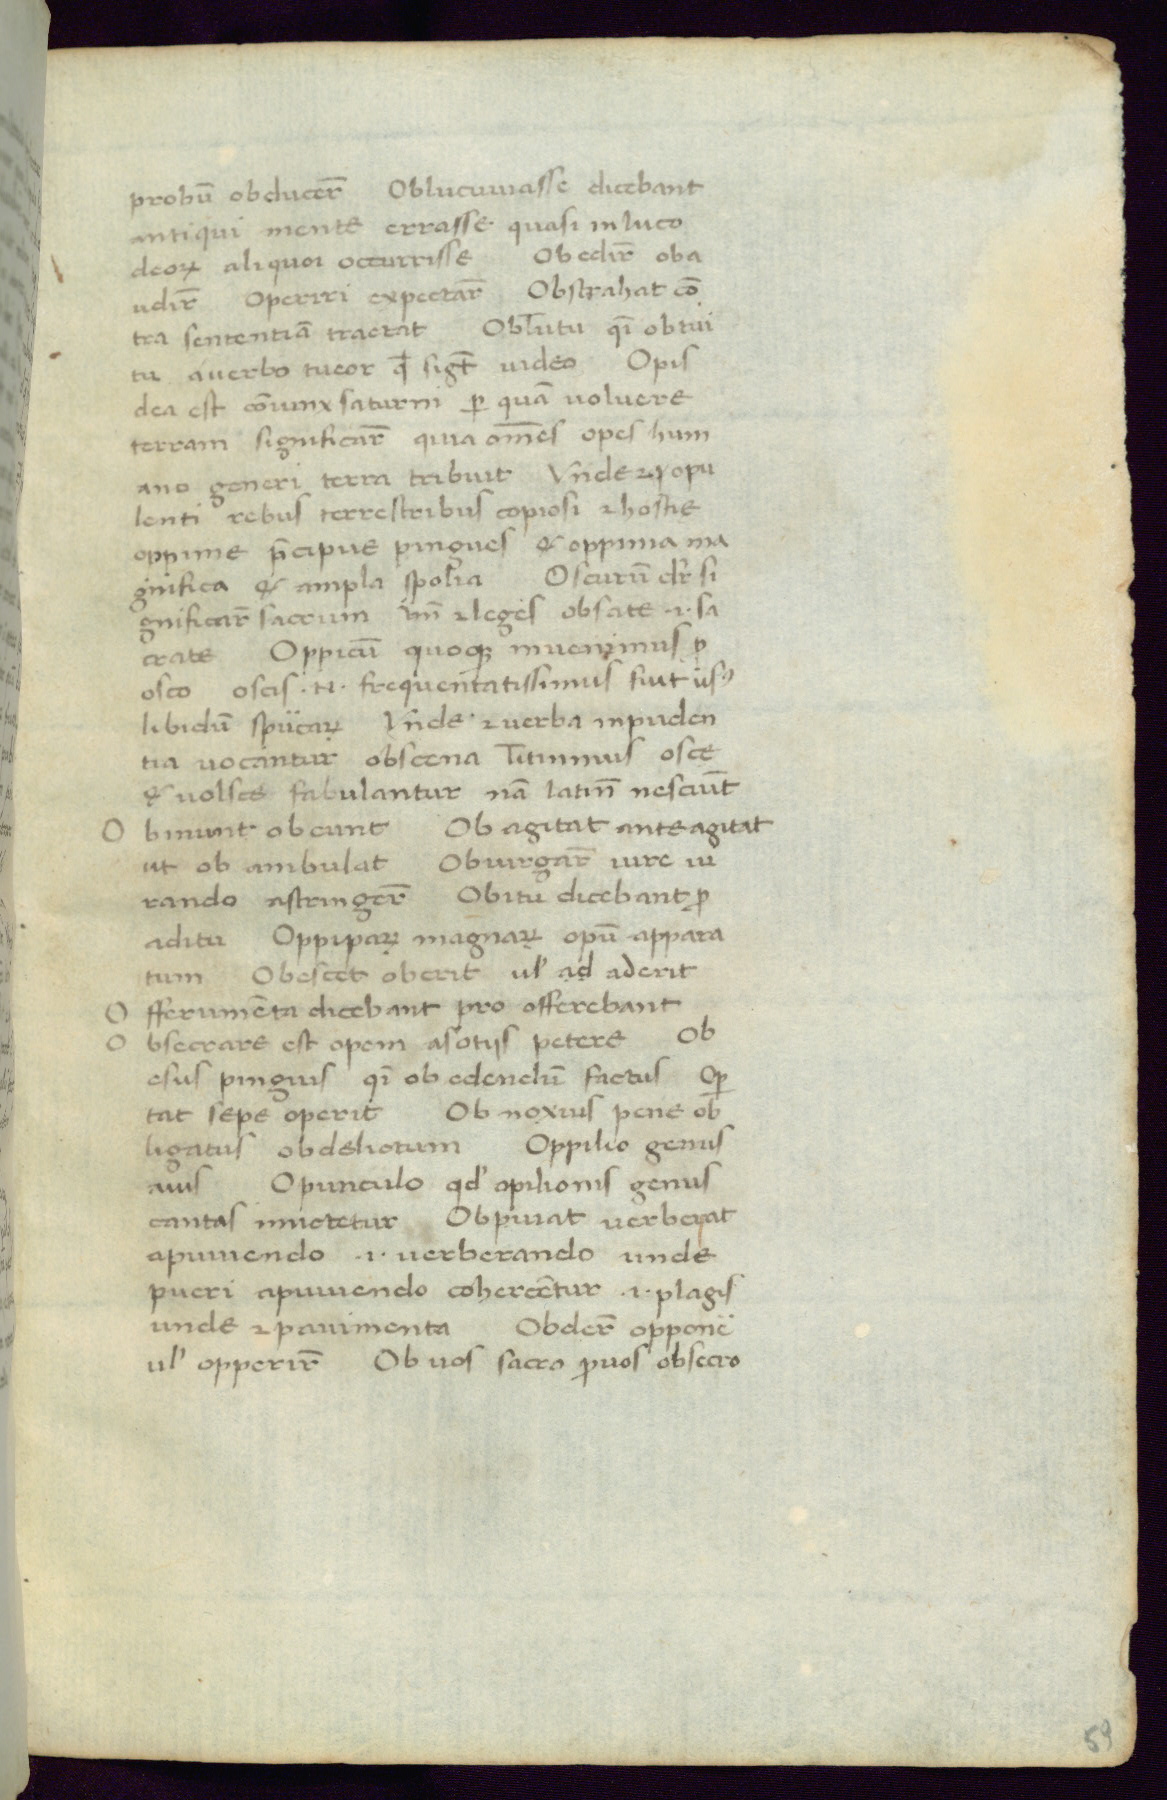 probū obducer̄ Oblucuuiasse dicebant
antiqui mente errasse quasi in luco
deoꝝ aliquoi occurrisse Obedir̄ oba
udir̄ Opperiri expectar̄ Obstrahat cō
tra sententiā tractat Obtutu q̄i obtui
tu a uerbo tueor qđ sigt̄ uideo Opis
dea est cōiunx saturni ꝑ quā uoluere
terram significar̄ quia om̄es opes hum
ano generi terra tribuit Vnde ⁊ opu
lenti rebus terrestribus copiosi ⁊ hostie
optime p̄cipue pingues & oppima ma
gnifica & ampla spolia Oscurū dr̄ si
gnificar̄ sacrum Vn̄ ⁊ leges obsate .i. sa
crate Oppicū quoqꝫ inuenimus ꝓ
osco oscis .N. frequentatissimus fiut us᾿
libidū spūcaꝝ Vnde ⁊ uerba inpuden
tia uocantur obscena Titinnius osce
& uolsce fabulantur nā latin̄ nesciūt
Obinunt obeunt Ob agitat ante agitat
ut ob ambulat Obiurgar̄ iure iu
rando astringer̄ Obitu dicebant ꝓ
aditu Oppipaꝝ magnaꝝ opū appara
tum Obescet oberit ul᾿ ad aderit
Offerumēta dicebant pro offerebant
Obsecrare est opem a sotijs petere Ob
esus pinguis q̄i ob edendū factus Oꝑ
tat sepe operit Ob noxius pene ob
ligatus ob delictum Oppilio genus
auis Opunculo qd᾿ opilionis genus
cantas imitetur Obpuiat uerberat
apuuiendo .i. uerberando unde
pueri apuuiendo cohercētur .i. plagis
unde ⁊ pauimenta Obder̄ oppone
ul᾿ opperir̄ Ob uos sacro ꝓ uos obsecro
59